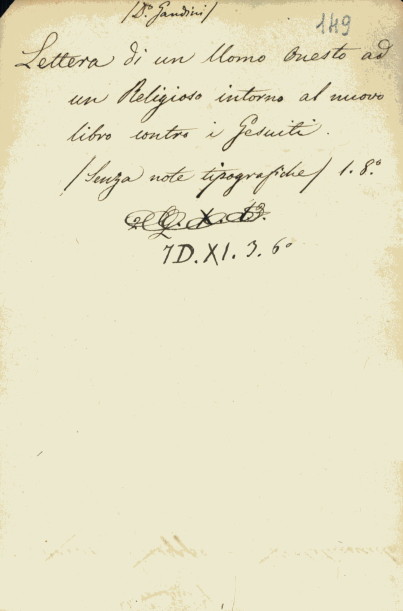 /Do. Gandini/
149
Lettera di un Uomo onesto ad
un Religioso intorno al nuovo
libro contro i Gesuiti.
/Senza note tipografiche/ 1. 8.o
7D. XI. 3. 6o